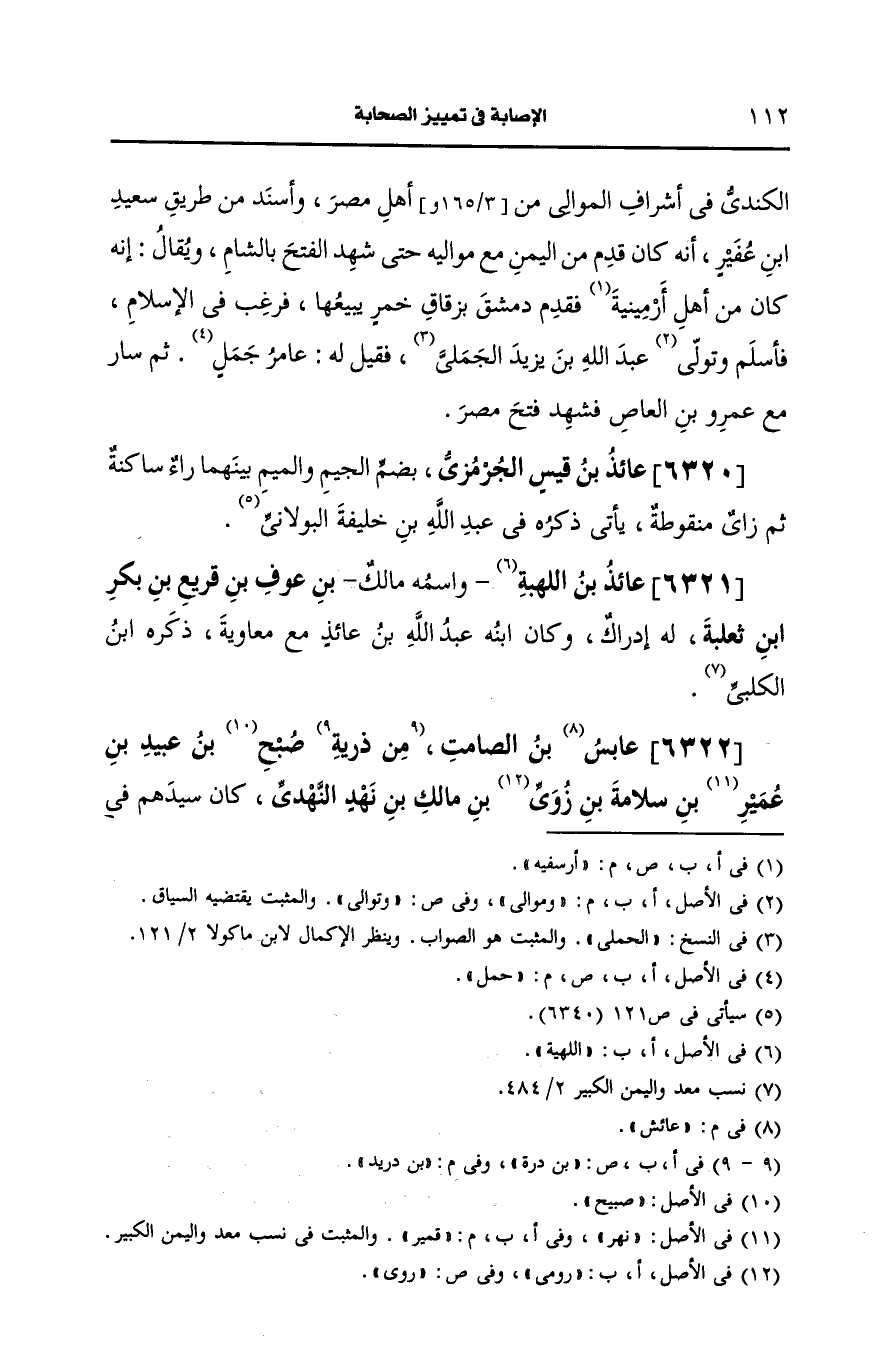 ١١٢ الإصابة فى تمييز الصحابة
الكندىُّ فى أشرافِ الموالِى من [١٦٥/٣و] أهلِ مصرَ ، وأسنَد من طريقِ سعيدِ
ابنِ عُفَيْرٍ ، أنه كان قدِم من اليمنِ مع مواليه حتى شهِد الفتحَ بالشامِ ، ويُقالُ : إنه
كان من أهلِ أَرْمِينيةَ(١) فقدِم دمشقَ بزقاقِ خمرٍ يبيعُها ، فرغِب فى الإسلامِ ،
فأسلَم وتولّى(٢) عبدَ اللهِ بنَ يزيدَ الجَمَلىَّ(٣) ، فقيل له : عامرُ جَمَلٍ(٤) . ثم سار
مع عمرِو بنِ العاصِ فشهِد فتحَ مصرَ .
[٦٣٢٠] عائذُ بنُ قيسٍ الجُرْمُزىُّ ، بضمِّ الجيمِ والميمِ بينَهما راءٌ ساكنةٌ
ثم زاىٌ منقوطةٌ ، يأتى ذكرُه فى عبدِ اللَّهِ بنِ خليفةَ البولانىِّ(٥) .
[٦٣٢١] عائذُ بنُ اللهبةِ(٦) - واسمُه مالكٌ- بنِ عوفِ بنِ قريعِ بنِ بكرِ
ابنِ ثعلبةَ ، له إدراكٌ ، وكان ابنُه عبدُ اللَّهِ بنُ عائذٍ مع معاويةَ ، ذكَره ابنُ
الكلبىِّ(٧) .
[٦٣٢٢] عابسُ(٨) بنُ الصامتِ ، (٩مِن ذريةِ٩) صُبْحِ(١٠) بنُ عبيدِ بنِ
عُمَيْرِ(١١) بنِ سلامةَ بنِ زُوَىِّ(١٢) بنِ مالكِ بنِ نَهْدٍ النَّهْدىِّ ، كان سيدَهم فى
(١) فى أ ، ب ، ص ، م : «أرسفيه» .
(٢) فى الأصل ، أ ، ب ، م : «وموالى» ، وفى ص : «وتوالى» . والمثبت يقتضيه السياق .
(٣) فى النسخ : «الحملى» . والمثبت هو الصواب . وينظر الإكمال لابن ماكولا ٢/ ١٢١.
(٤) فى الأصل ، أ ، ب ، ص ، م : «حمل» .
(٥) سيأتى فى ص١٢١ (٦٣٤٠).
(٦) فى الأصل ، أ ، ب : «اللهية» .
(٧) نسب معد واليمن الكبير ٢/ ٤٨٤.
(٨) فى م : «عائش» .
(٩ - ٩) فى أ ، ب ، ص : «بن درة» ، وفى م : «بن دريد» .
(١٠) فى الأصل : «صبيح» .
(١١) فى الأصل : «نهر» ، وفى أ ، ب ، م : «قمير» . والمثبت فى نسب معد واليمن الكبير .
(١٢) فى الأصل ، أ ، ب : «رومى» ، وفى ص : «روى» .